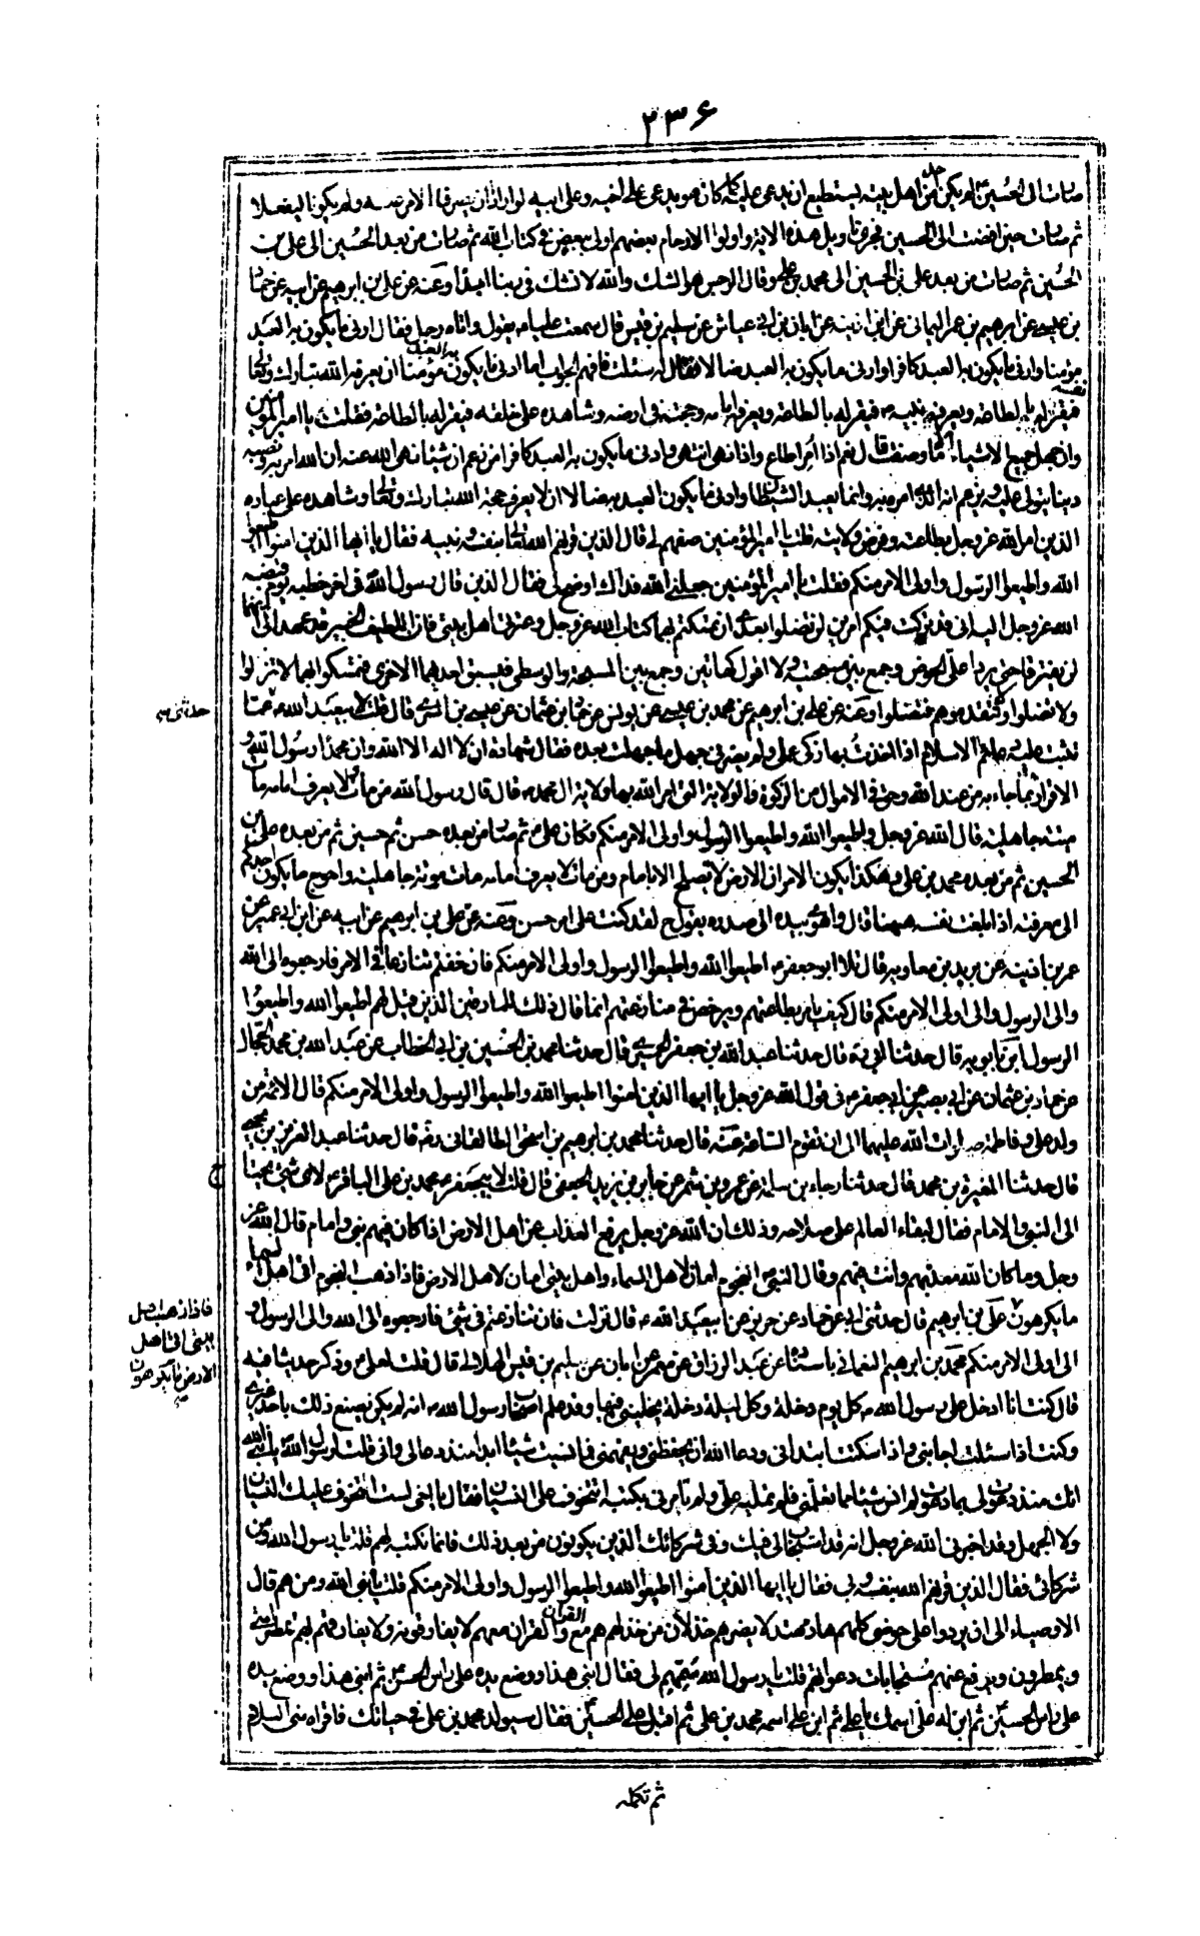 ۲۳۶
صارت الى الحسين لم يكن احد من اهل بيته يستطيع ان يدعى عليه كما كان هو يدعى على اخيه وعلى ابيه لو ارادا ان يصرفا الامر عنه ولم يكونا ليفعلا
ثم صارت حين افضت الى الحسين فجرى تاويل هذه الاية واولوا الارحام بعضهم اولى ببعض فى كتاب الله ثم صارت من بعد الحسين الى على بن
الحسين ثم صارت من بعد على بن الحسين الى محمد بن على وقال الرجس هو الشك والله لا نشك فى ربنا ابدا وعنه عن على بن ابرهيم عن ابيه عن حماد
بن عيسى عن ابرهيم بن عمر اليمانى عن ابن اذينه عن ابان بن ابى عياش عن سليم بن قيس قال سمعت عليا يقول واتاه رجل فقال ادنى ما يكون به العبد
مؤمنا وادنى ما يكون به العبد كافرا وادنى ما يكون به العبد ضالا فقال له سئلت فافهم الجواب اما ادنى ما يكون به العبد مؤمنا ان يعرفه الله تبارك وتعالى
نفسه فيقر له بالطاعة ويعرفه نبيه فيقر له بالطاعة ويعرفه امامه وحجته فى ارضه وشاهده على خلقه فيقر له بالطاعة فقلت يا امير المؤمنين
وان جهل جميع الاشياء الا ما وصفت قال نعم اذا امر اطاع واذا نهى انتهى وادنى ما يكون به العبد كافرا من زعم ان شيئا نهى الله عنه ان الله امر به ونصبه
دينا يتولى عليه ويزعم انه يعبد الذى امره به وانما يعبد الشيطان وادنى ما يكون العبد به ضالا ان لا يعرف حجة الله تبارك وتعالى وشاهده على عباده
الذين امر الله عز وجل بطاعته وفرض ولايته قلت يا امير المؤمنين صفهم لى قال الذين قرنهم الله تعالى بنفسه ونبيه فقال يا ايها الذين امنوا اطيعوا
الله واطيعوا الرسول واولى الامر منكم فقلت يا امير المؤمنين جعلنى الله فداك اوضح لى فقال الذين قال رسول الله فى اخر خطبه يوم قبضه
الله عز وجل اليه انى قد تركت فيكم امرين لن تضلوا بعدى ان تمسكتم بهما كتاب الله عز وجل وعترتى اهل بيتى فان اللطيف الخبير قد عهد الى انهما
لن يفترقا حتى يردا على الحوض وجمع بين مسبحتيه ولا اقول كهاتين وجمع بين المسبحة والوسطى فتسبق احديهما الاخرى فتمسكوا بهما لا تزلوا
ولا تضلوا ولا تقدموهم فتضلوا وعنه عن على بن ابرهيم عن محمد بن عيسى عن يونس عن حماد بن عثمان عن عيسى بن السرى قال قلت لابيعبد الله حدثنى عما
ثبت عليه دعائم الاسلام اذا اخذت بها زكى عملى ولم يضرنى جهل ما جهلت بعده فقال شهادة ان لا اله الا الله وان محمدا رسول الله و
الاقرار بما جاء به من عند الله وحق فى الاموال من الزكوة والولاية التى امر الله بها ولاية ال محمد قال قال رسول الله من مات ولا يعرف امامه مات
ميتة جاهلية قال الله عز وجل واطيعوا الله واطيعوا الرسول واولى الامر منكم فكان على ثم صار من بعده حسن ثم حسين ثم من بعده على بن
الحسين ثم من بعده محمد بن على وهكذا يكون الامر ان الارض لا تصلح الا بامام ومن مات لا يعرف امامه مات موتة جاهلية واحوج ما يكون احدكم
الى معرفته اذا بلغت نفسه ههنا قال واهوى بيده الى صدره يقول ح لقد كنت على امر حسن وعنه عن على بن ابرهيم عن ابيه عن ابن ابى عمير عن
عمر بن اذينه عن بريد بن معاويه قال تلا ابو جعفر اطيعوا الله واطيعوا الرسول واولى الامر منكم فان خفتم تنازعا فى الامر فارجعوه الى الله
والى الرسول والى اولى الامر منكم قال كيف يامر بطاعتهم ويرخص فى منازعتهم انما قال ذلك للمارقين الذين قيل لهم اطيعوا الله واطيعوا
الرسول ابن بابويه قال حدثنا ابى ره قال حدثنا عبد الله بن جعفر الحميرى قال حدثنا محمد بن الحسين بن ابى الخطاب عن عبد الله بن محمد الحجال
عن حماد بن عثمان عن ابى بصير عن ابى جعفر فى قول الله عز وجل يا ايها الذين امنوا اطيعوا الله واطيعوا الرسول واولى الامر منكم قال الائمة من
ولد على وفاطمة صلوات الله عليهما الى ان تقوم الساعة عنه قال حدثنا محمد بن ابرهيم بن اسحق الطالقانى رضه قال حدثنا عبد العزيز بن يحيى
قال حدثنا المغيرة بن محمد قال حدثنا رجاء بن سلمة عن عمرو بن شمر عن جابر بن يزيد الجعفى قال قلت لابيجعفر محمد بن على الباقر لاى شئ يحتاج
الى النبى والامام فقال لبقاء العالم على صلاحه وذلك ان الله عز وجل يرفع العذاب عن اهل الارض اذا كان فيهم نبى وامام قال الله عز
وجل وما كان الله معذبهم وانت فيهم وقال النبى النجوم امان لاهل السماء واهل بيتى امان لاهل الارض فاذا ذهبت النجوم اتى اهل السماء
فاذا ذهب اهل
بيتى اتى اهل
الارض ما يكرهون
ما يكرهون على بن ابرهيم قال حدثنى ابى عن حماد عن حريز عن ابيعبد الله قال نزلت فان تنازعتم فى شئ فارجعوه الى الله والى الرسول و
الى اولى الامر منكم محمد بن ابرهيم النعمانى باسناده عن عبد الرزاق عن معمر عن ابان عن سليم بن قيس الهلالى قال قلت لعلى وذكر حديثا فيه
قال كنت انا ادخل على رسول الله كل يوم دخلة وكل ليلة دخلة يخلينى فيها وقد علم اصحاب رسول الله انه لم يكن يصنع ذلك باحد غيرى
وكنت اذا سئلت اجابنى واذا سكت ابتدانى ودعا الله ان يحفظنى ويفهمنى فما نسيت شيئا ابدا منذ دعا لى وانى قلت لرسول الله يا نبى الله
انك منذ دعوت لى بما دعوت لم انس شيئا مما تعلمنى فلم تمليه على ولم تامرنى بكتبه اتتخوف على النسيان فقال يا اخى لست اتخوف عليك النسيان
ولا الجهل وقد اخبرنى الله عز وجل انه قد استجاب لى فيك وفى شركائك الذين يكونون من بعد ذلك فانما تكتبه لهم قلت يا رسول الله ومن
شركائى فقال الذين قرنهم الله بنفسه وبى فقال يا ايها الذين امنوا اطيعوا الله واطيعوا الرسول واولى الامر منكم قلت يا نبى الله ومن هم قال
الاوصياء الى ان يردوا على حوضى كلهم هاد مهتد لا يضرهم خذلان من خذلهم هم مع القران والقران معهم لا يفارقونه ولا يفارقهم بهم تنصر امتى
ويمطرون ويدفع عنهم بمستجابات دعواتهم قلت يا رسول الله سمهم لى فقال ابنى هذا ووضع يده على راس الحسن ثم ابنى هذا ووضع يده
على راس الحسين ثم ابن له على اسمك يا على ثم ابن على اسمه محمد بن على ثم اقبل على الحسين فقال سيولد محمد بن على فى حياتك فاقراه منى السلام
ثم تكمله